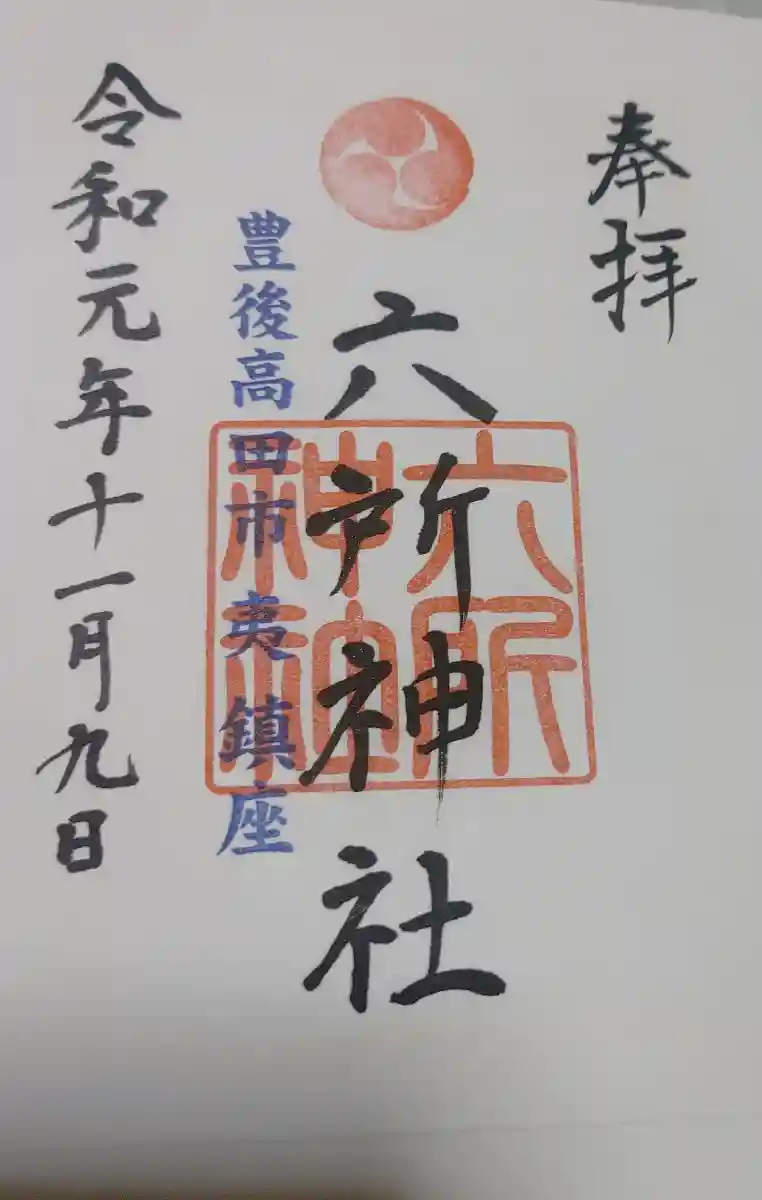 奉拝
六所神社
六所神社
豊後高田市夷鎮座
令和元年十一月九日